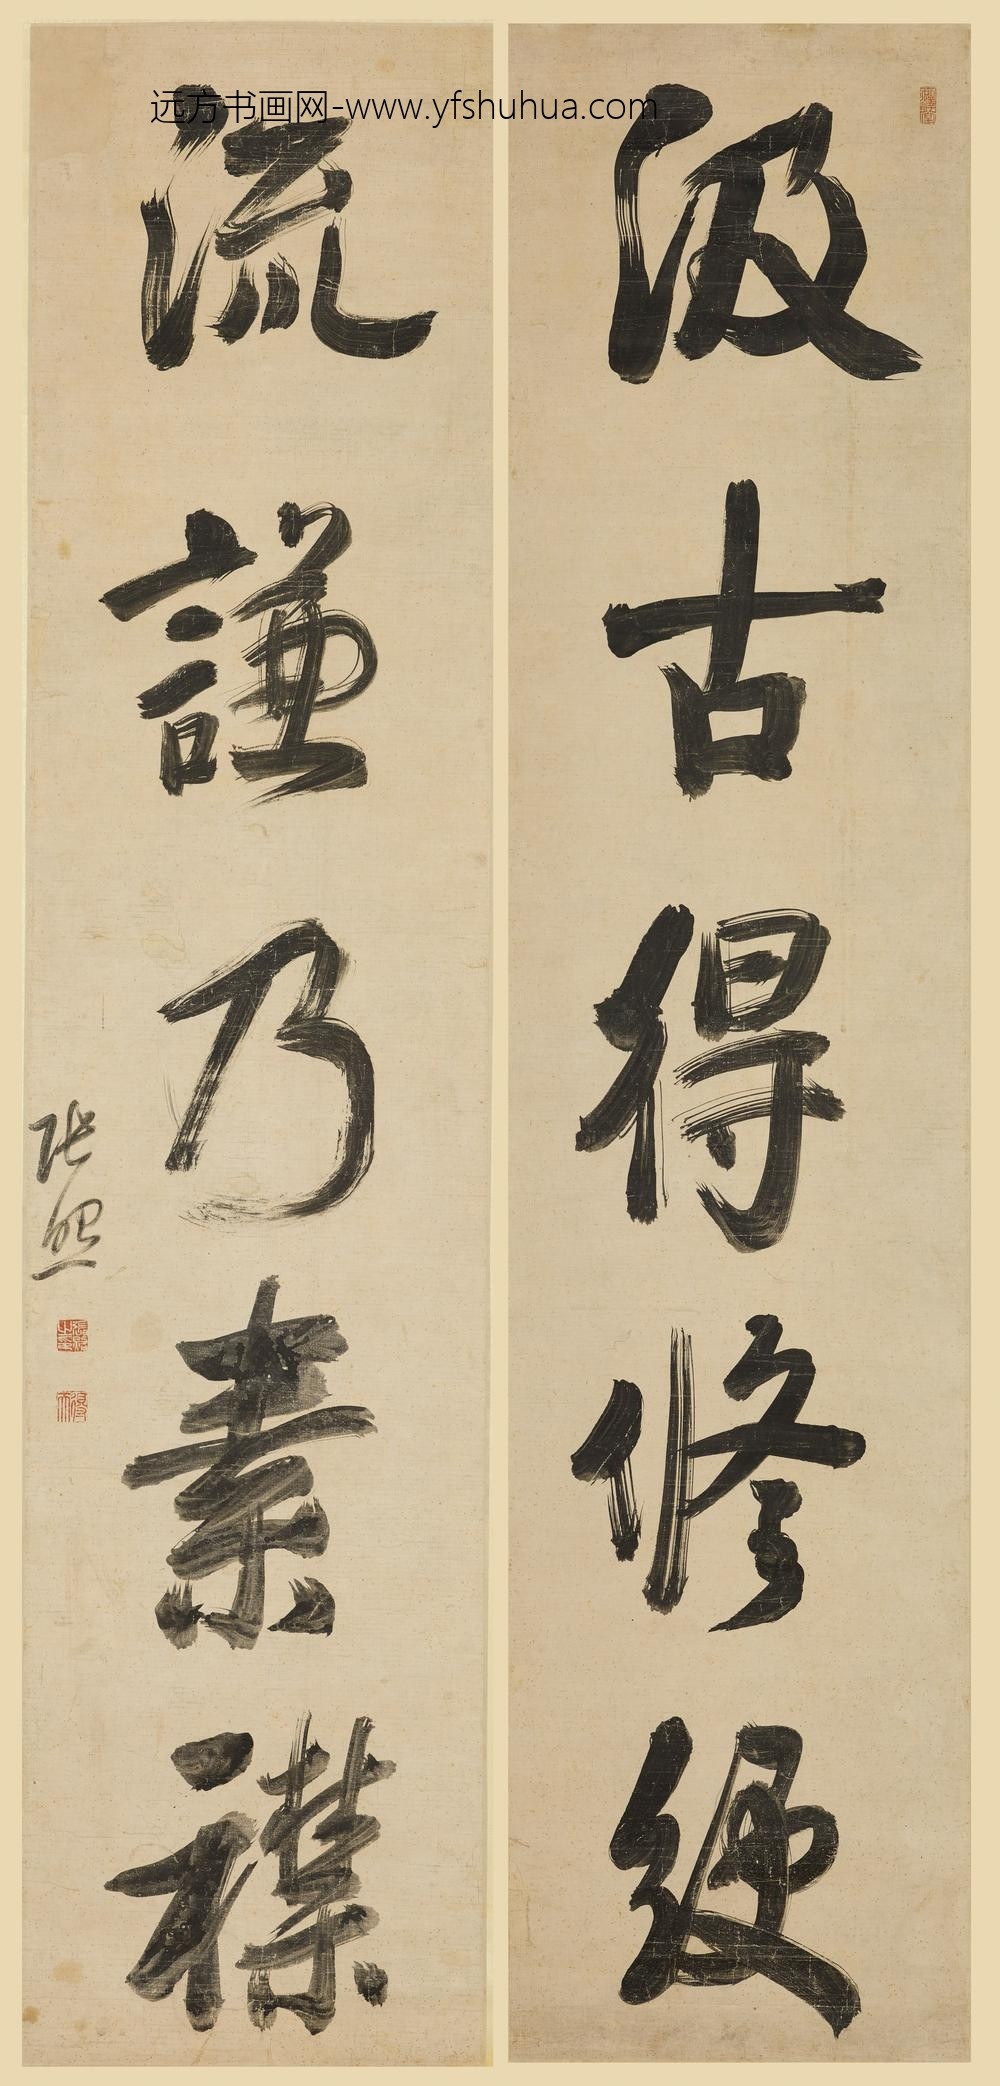 远方书画网-www.yfshuhua.com
汲古得修綆
流謙乃素襟
張照
張照之印